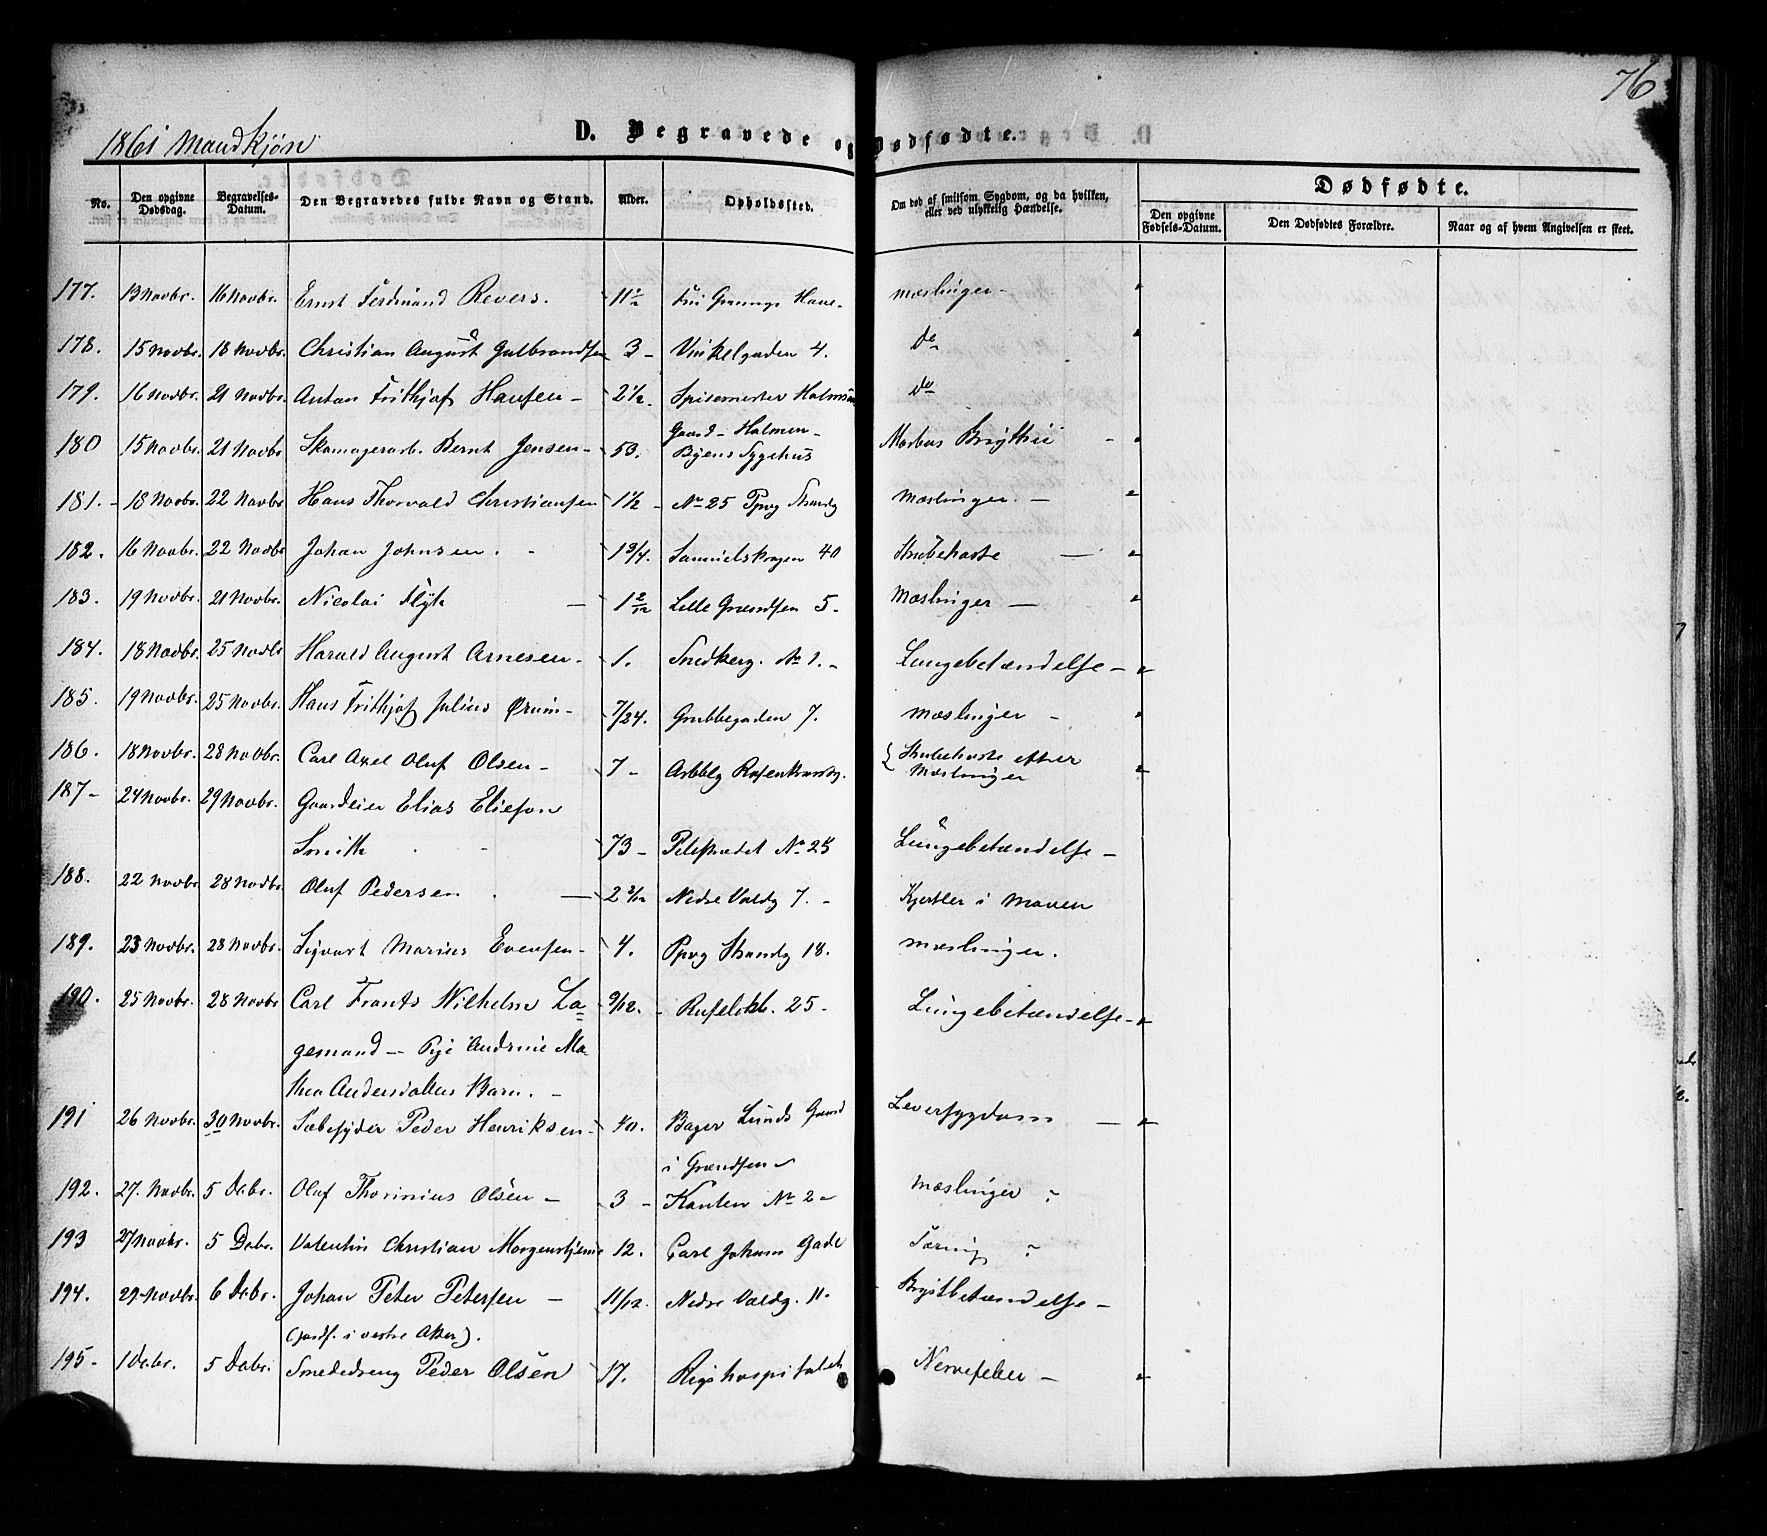 76
1861 Mandkjøn
D. Begravede og Dødfødte.
No. Den opgivne Dødsdag. Begravelses-Datum. Den Begravedes fulde Navn og Stand. Alder. Opholdssted. Om død af smitsom Sygdom, og da hvilken, eller ved ulykkelig Hændelse. Dødfødte.
Den opgivne Fødsels-Datum. Den Dødfødtes Forældre. Naar og af hvem Angivelsen er skeet.
177. 13 Novbr. 16 Novbr. Ernst Ferdinand Revers. 11½ Fru Grünings Have. Mæslinger -
178. 15 Novbr. 18 Novbr. Christian August Gulbrandsen 3 - Vinkelgaden 4. Do
179. 16 Novbr. 21 Novbr. Anton Frithjof Hansen - 2½. Spisemester Do
180 15 Novbr. 21 Novbr Skomagerarb. Bernt Jensen - 53. Gaard - Holmen - Byens Sygehus Morbus Brigthii -
181. - 18 Novbr. 22 Novbr Hans Thorvald Christiansen 1½ - No 25 Ppvg Strandg Mæslinger. -
182. 16 Novbr. 22 Novbr Johan Johnsen. - 1¾. Samuelskrogen 40 Strubehoste -
183. 19 Novbr. 21 Novbr. Nicolai Flyk - 1 2/12 Lille Grændsen 5. Mæslinger -
184. 18 Novbr. 25 Novbr Harald August Arnesen. 1. Snedkerg. No 1. - Lungebetændelse -
185. 19 Novbr. 25 Novbr. Hans Frithjof Julius Ørum - 7/24. Grubbegaden 7. Mæslinger -
186. 18 Novbr. 28 Novbr. Carl Axel Oluf Olsen - 7 - Arbbg Rosenkrantzg. Strubehoste efter Mæslinger
187 - 24 Novbr. 29 Novbr. Gaardeier Elias Eliesøn
Smith 73 - Pilestrædet No 25 Lungebetændelse -
188. 22 Novbr 28 Novbr. Oluf Pedersen. - 2 3/12 Nedre Voldg 7. - Kjertler i Maven
189. 23 Novbr. 28 Novbr. Sigvart Marius Evensen - 4. Ppvg Strandg 18. Mæslinger.
190. 25 Novbr. 28 Novbr Carl Frants Vilhelm La= 9/12. - Ruseløkb. 25 - Lungebetændelse -
gesmand - Pige Andrine Ma-
thea Andersdatters Barn. -
191 26 Novbr. 30 Novbr. Sæbesyder Peder Henriksen - 40. Bager Lunds Gaard Leversygdom -
i Grændsen
192. 27. Novbr. 5 Dcbr. Oluf Thorinius Olsen - 3 - Kanten No 2 - Mæslinger
193 27 Novbr. 5 Dcbr. Valentin Christian Morgenstjerne 12. Carl Johans Gade Tæring
194. 29 Novbr. 6 Dcbr. Johan Peter Petersen - 11/12. Nedre Voldg. 11. Brystbetændelse -
(jordf. i vestre Aker).
195 - 1 Dcbr. 5 Dcbr. Smededreng Peder Olsen 17. Rigshospitalet Nervefeber -